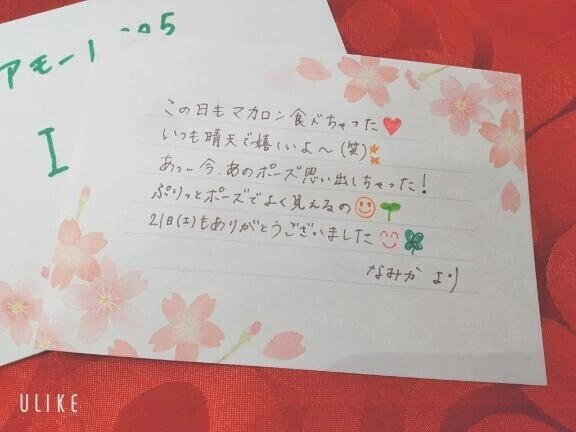 アモーレ
I
この日もマカロン食べちゃった❤
いつも晴天で嬉しいよ〜(笑)
あっ…今、あのポーズ思い出しちゃった!
ぷりっとポーズでよく見えるの☺🌱
21日(土)もありがとうございました😊🍀
なみか より
ULIKE